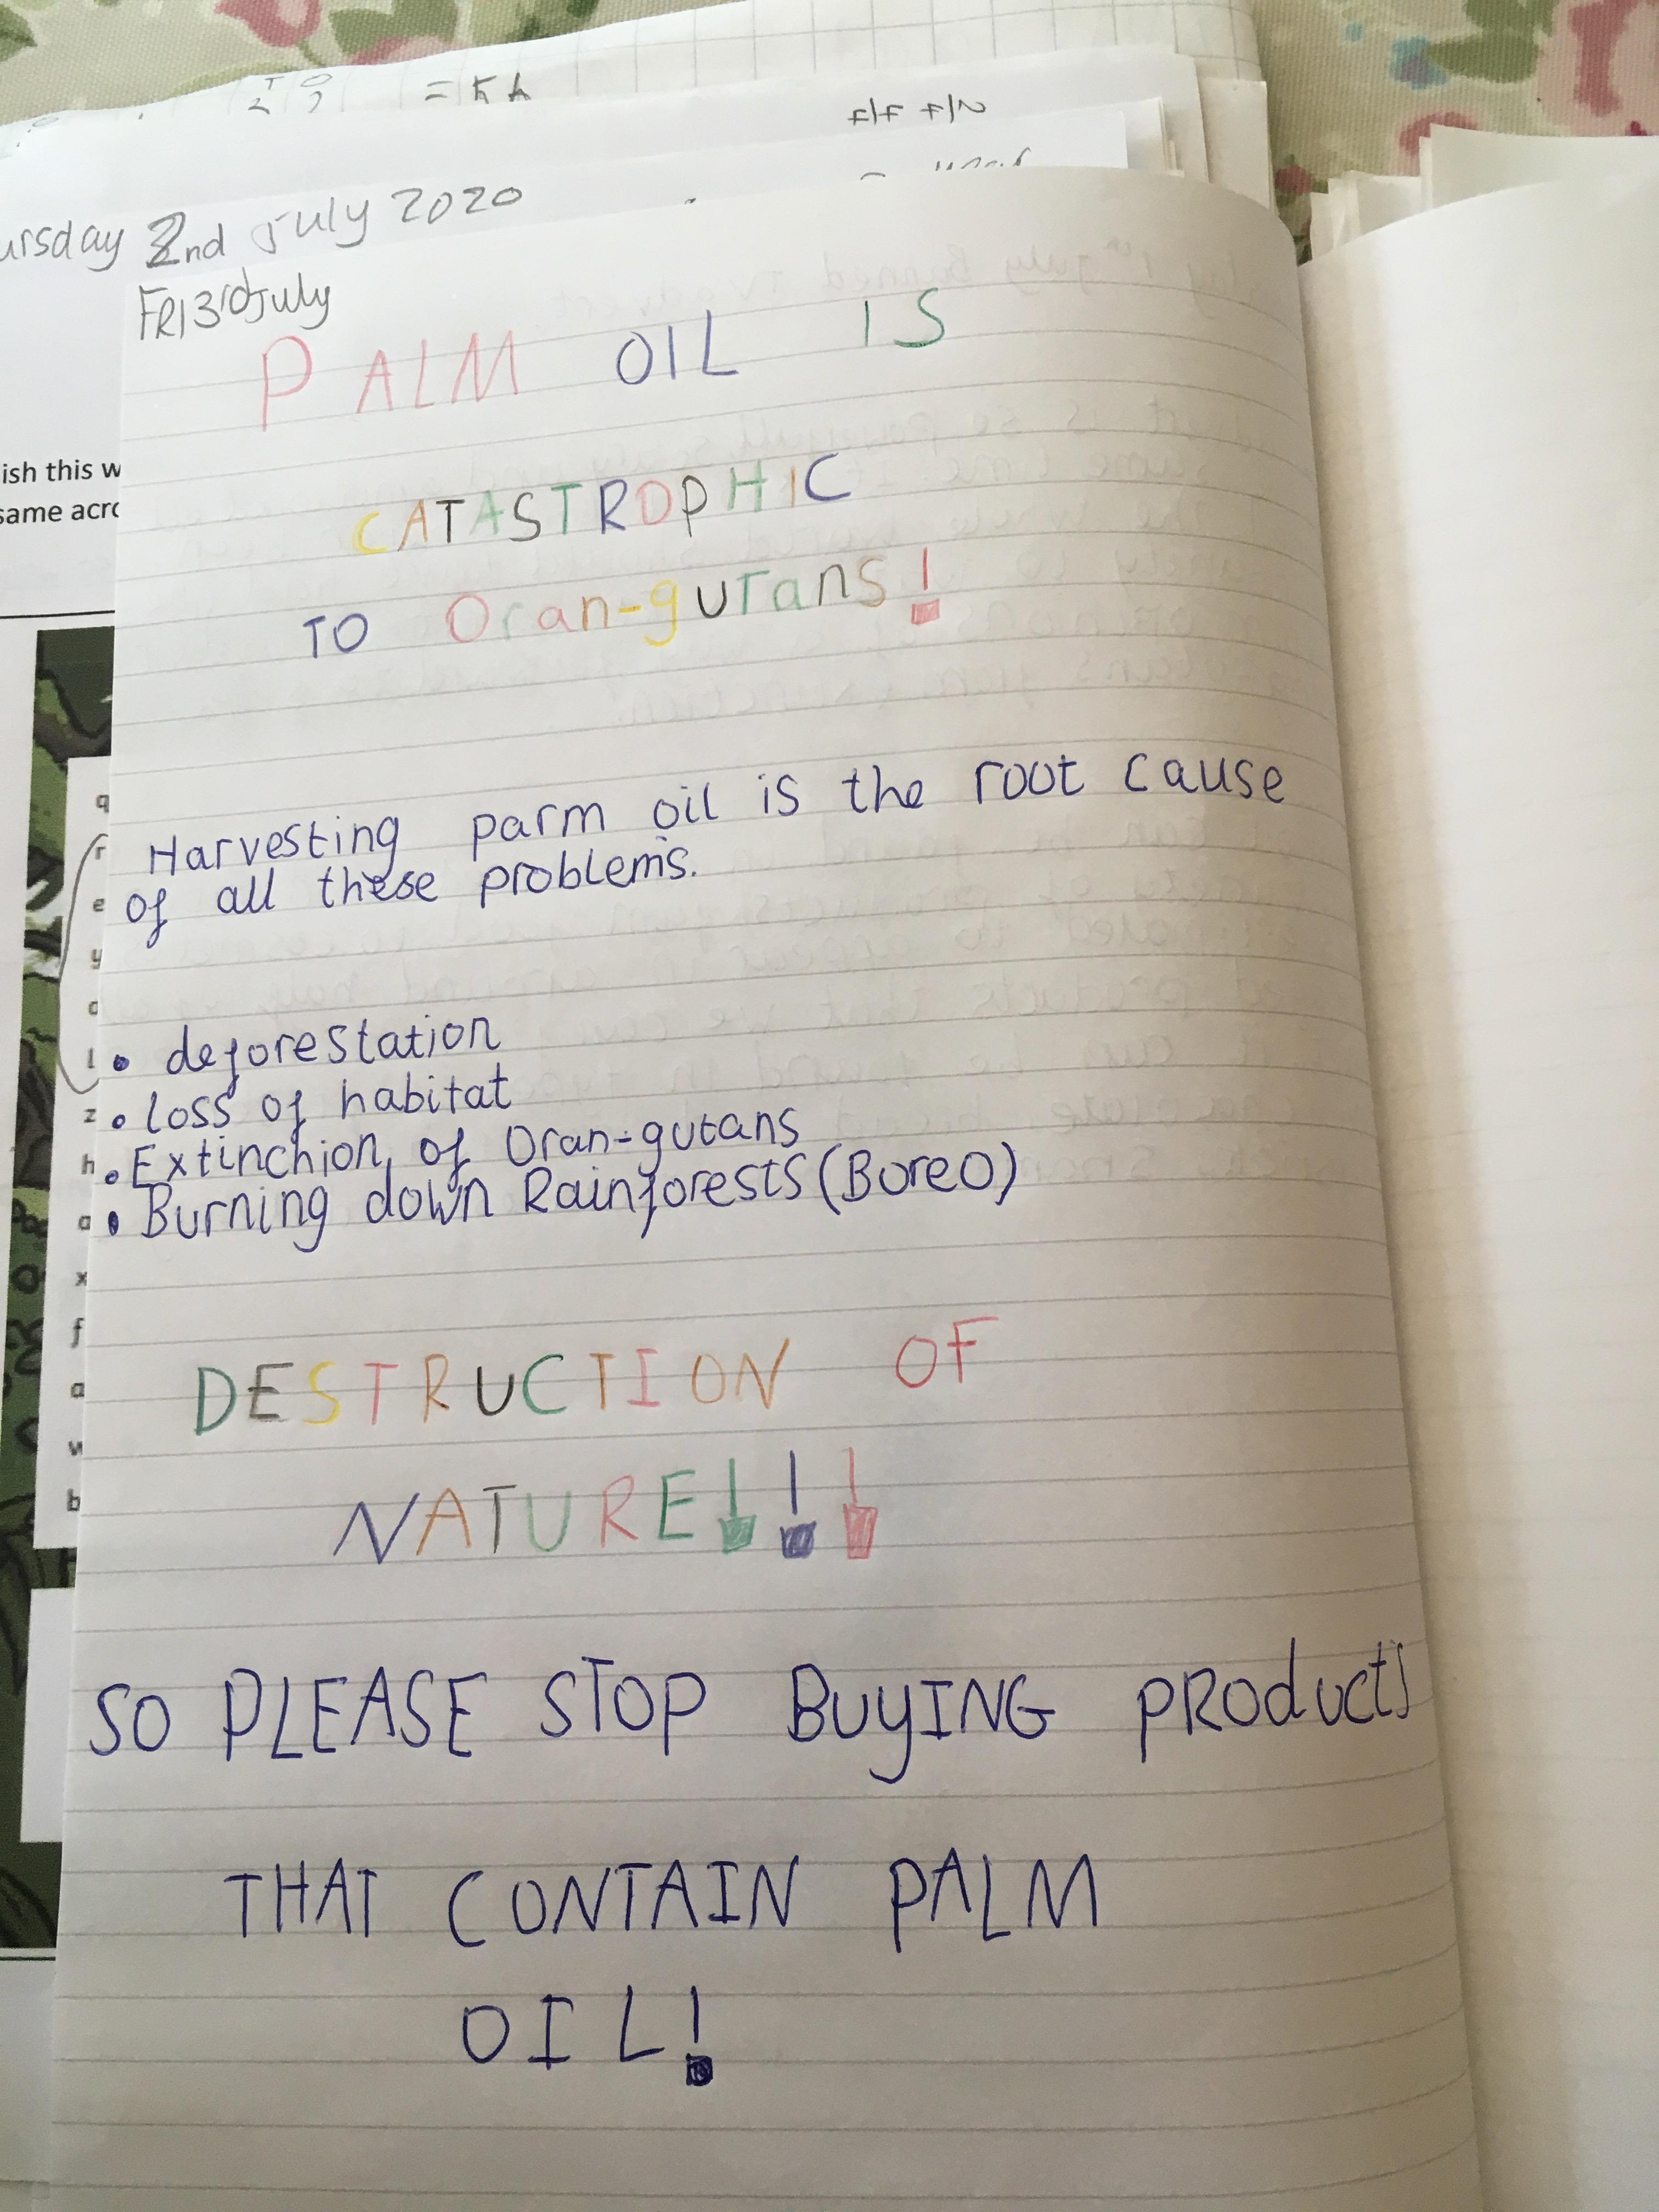 2nd July 2020
FRI 3rd July
PALM OIL IS
CATASTROPHIC
TO Oran-gutans!
Harvesting parm oil is the root cause
of all these problems.
• deforestation
• loss of habitat
• Extinchion of Oran-gutans
• Burning down Rainforests (Boreo)
DESTRUCTION OF
NATURE!!!
SO PLEASE STOP BUYING PRoducts
THAT CONTAIN PALM
OIL!
ish this w
same acro
q
r
e
y
l
z
h
a
x
f
a
w
b